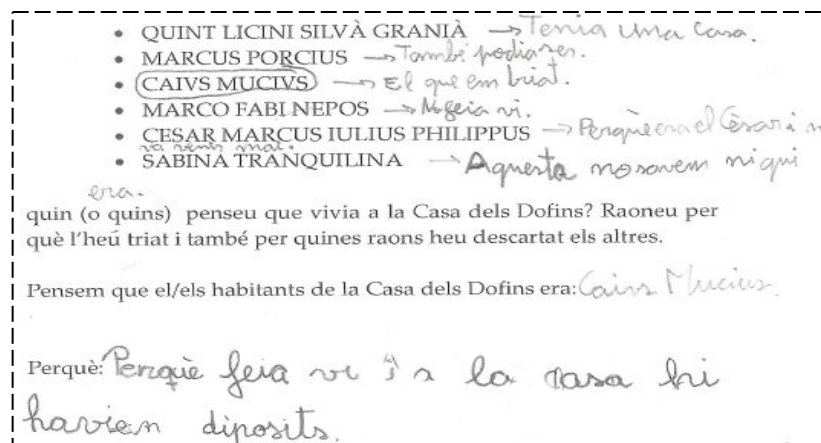 • QUINT LICINI SILVÀ GRANIÀ → Tenia una casa.
• MARCUS PORCIUS → També podia ser.
• CAIVS MUCIVS → El que em triat.
• MARCO FABI NEPOS → No feia vi.
• CESAR MARCUS IULIUS PHILIPPUS → Perquè era el Cèsar i n
va venir mai.
• SABINA TRANQUILINA → Aquesta no savem ni qui
era.
quin (o quins) penseu que vivia a la Casa dels Dofins? Raoneu per
què l'heu triat i també per quines raons heu descartat els altres.
Pensem que el/els habitants de la Casa dels Dofins era: Caius Mucius.
Perquè: Perquè feia vi i a la casa hi
havien diposits.